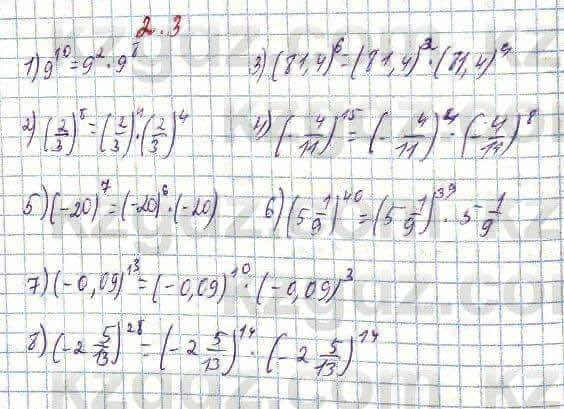 2.3
1) 9^10 = 9^2 · 9^8 3) (81,4)^6 = (81,4)^2 · (81,4)^4
2) (2/3)^5 = (2/3)^4 · (2/3)^4 4) (- 4/11)^15 = (- 4/11)^8 · (- 4/11)^8
5) (-20)^7 = (-20)^6 · (-20) 6) (5 1/9)^40 = (5 1/9)^39 · 5 1/9
7) (-0,09)^13 = (-0,09)^10 · (-0,09)^3
8) (-2 5/13)^28 = (-2 5/13)^14 · (-2 5/13)^14